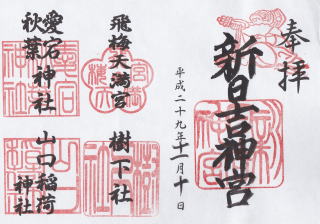 奉拝
新日吉神宮
平成二十九年十一月十日
飛梅天満宮
樹下社
愛宕神社
秋葉
山口稲荷
神社